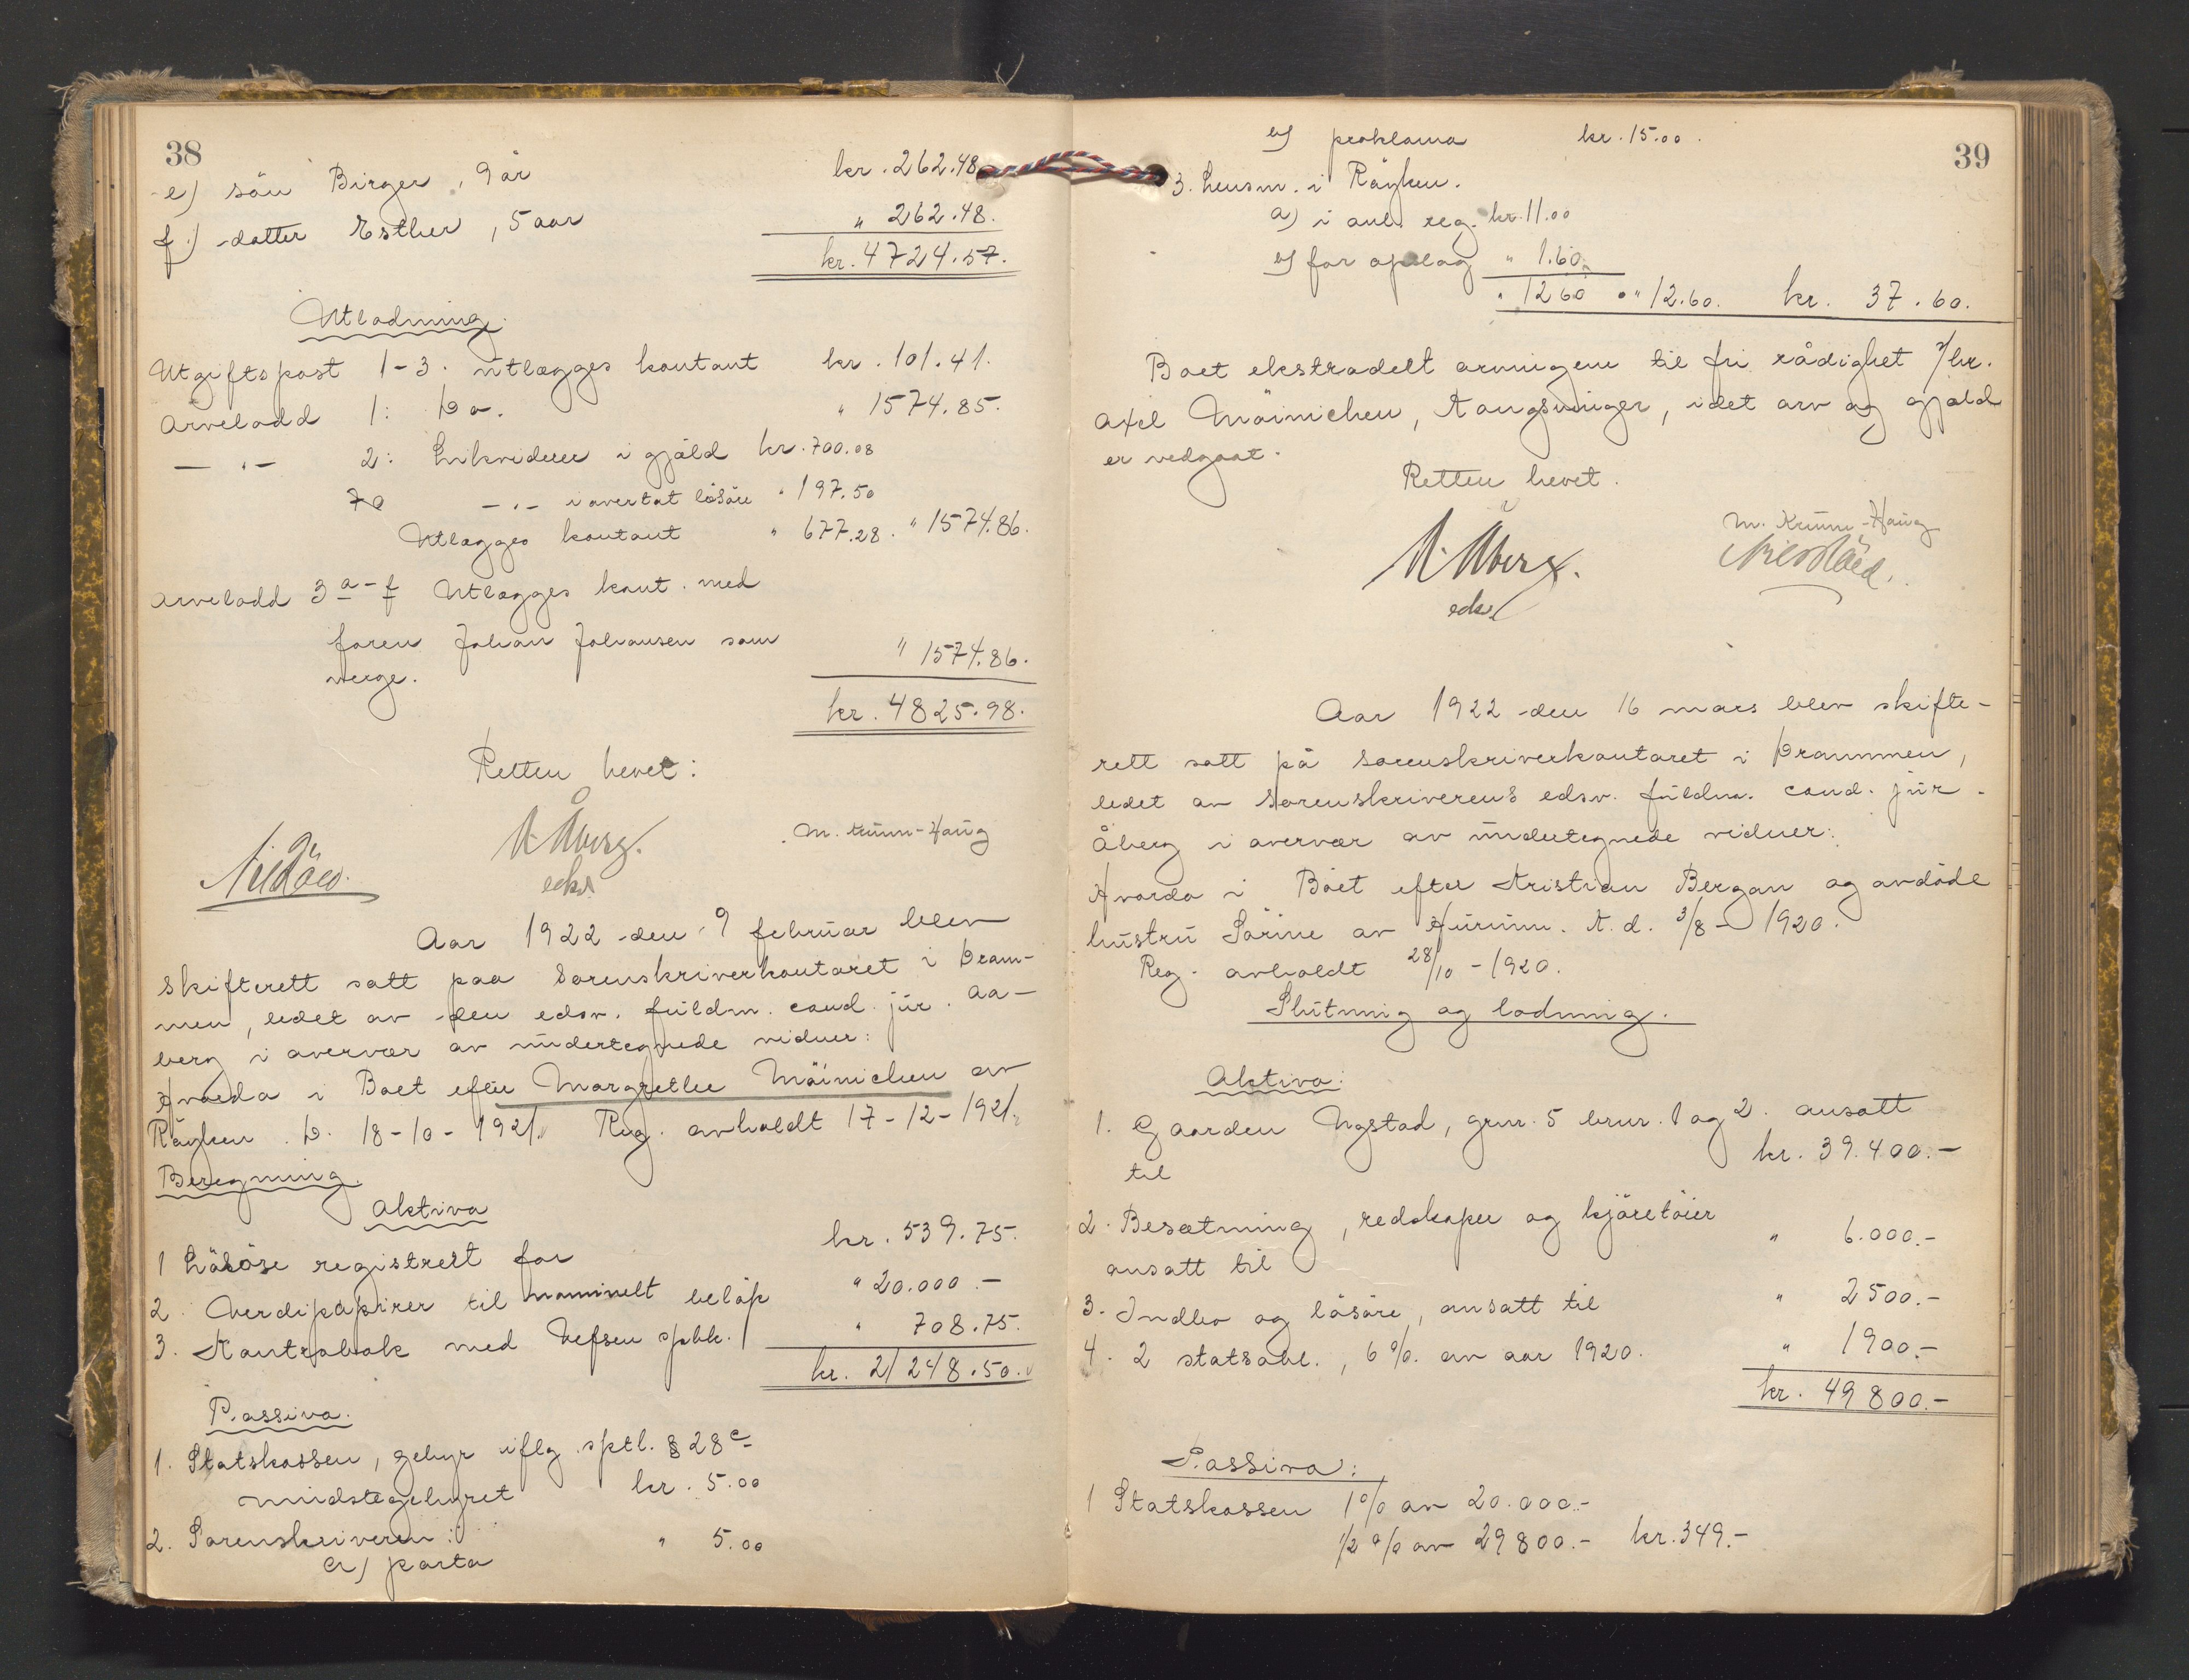 38
e) sön Birger, 9 år kr. 262.48
f.) datter Esther, 5 aar " 262.48.
kr. 4724.57.
Utlodning.
Utgiftspost 1-3. utlægges kontant kr. 101.41.
Arvelodd 1: Do. " 1574.85.
— " — 2: Likviderer i gjæld kr. 700.08
— " — i overtat lösöre " 197.50
Utlægges kontant " 677.28. " 1574.86.
Arvelodd 3 a-f Utlægges kont. med
faren Johan Johansen som
verge. " 1574.86.
kr. 4825.98.
Retten hevet:
N. Åberg. M. Krumm-Haug
edsv
Aar 1922 den 9 februar blev
skifterett satt paa Sorenskriverkontoret i Dram-
men, ledet av den edsv. fuldm. cand. jur. Aa-
berg i overvær av undertegnede vidner:
Hvorda i Boet efter Margrethe Möinichen av
Røyken. D. 18-10-1921. Reg. avholdt 17-12-1921.
Beregning.
Aktiva
1 Lösöre registrert for kr. 539.75.
2 Verdipapirer til nominelt beløp " 20.000.—
3. Kontrabok med Vefsen spbk. " 708.75.
kr. 21248.50.
Passiva.
1. Statskassen, gebyr iflg. sptl. § 28 c
mindstegebyret kr. 5.00
2. Sorenskriveren:
a) porto " 5.00
39
b) proklama kr. 15.00.
3. Lensm. i Røyken.
a) i anl. reg. kr. 11.00
b) for opslag " 1.60
" 12 60 " 12.60. kr. 37.60.
Boet ekstradelt arvingene til fri rådighet v/hr.
Axel Möinichen, Kongsvinger, idet arv og gjæld
er vedgaat.
Retten hevet.
N. Åberg. M. Krumm-Haug
edsv
Aar 1922 den 16 mars blev skifte-
rett satt på Sorenskriverkontoret i Drammen,
ledet av Sorenskriverens edsv. fuldm. cand. jur.
Åberg i overvær av undertegnede vidner:
Hvorda i Boet efter Kristian Bergan og avdöde
hustru Sörine av Hurum. K. d. 3/8-1920.
Reg. avholdt 28/10-1920.
Slutning og lodning.
Aktiva:
1. Gaarden Ugstad, grnr. 5 brnr. 1 og 2. ansatt
til kr. 39.400.—
2. Besætning, redskaper og kjøretöier
ansatt til " 6.000.—
3. Indbo og lösöre, ansatt til " 2500.—
4. 2 statsobl., 6%. av aar 1920. " 1900.—
kr. 49800.—
Passiva:
1 Statskassen 1% av 20.000.—
1/2% av 29800.— kr. 349.—